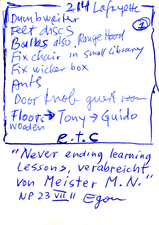 214 Lafayette
1
Dumbwaiter
Felt discs
Bulbs also. Range Hood
Fix chair in small Library
Fix wicker box
Ants
Door knob guest room
Floor → Tony → Guido
wooden
e.t.c
"Never ending learning
Lessons, verabreicht
von Meister M.N."
NP 23 VII 11 Egon